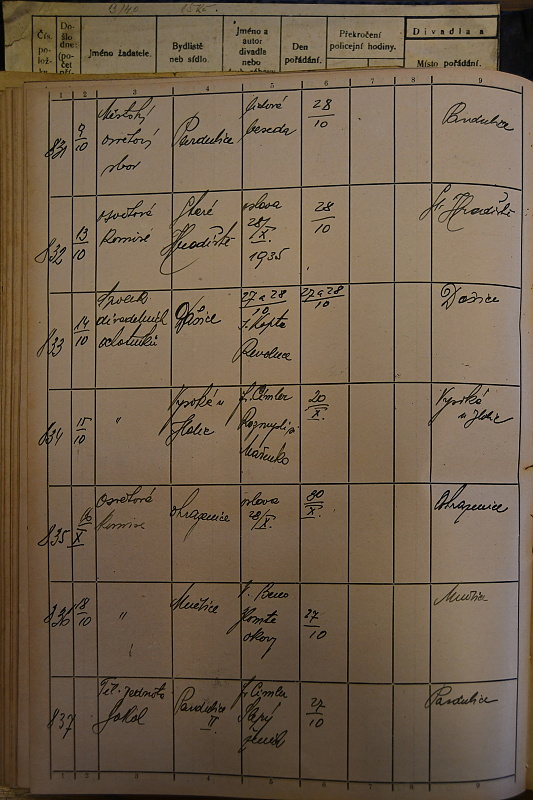 Čís.
polož-
Do-
šlo
dne:
(po-
čet
Jméno žadatele.
Bydliště
neb sídlo.
Jméno a
autor
divadla
nebo
Den
pořádání.
Překročení
policejní hodiny.
Divadla a
Místo pořádání.
1 2 3 4 5 6 7 8 9
831
9
10
Městský
osvětový
sbor
Pardubice
lidová
beseda
28
10
Pardubice
832
13
10
osvětová
komise
Staré
Hradiště
oslava
28/
X.
1935
28
10
St. Hradiště
833
14
10
Spolek
divadelních
ochotníků
Dašice
27 a 28
10
Kopta
Revoluce
27 a 28
10
Dašice
834
15
10
"
Vysoké u
Holic
Fr. Cimler
Mařenko
20
X.
Vysoká
u Holic
835
16
X
Osvětová
komise
Ohrazenice
oslava
28/X.
30
X.
Ohrazenice
836
18
10
"
okovy
27
10
837
Těl. jednota
Sokol
Pardubice
II.
Fr. Cimler
Slepý
ženich
27
10
Pardubice
1 2 3 4 5 6 7 8 9